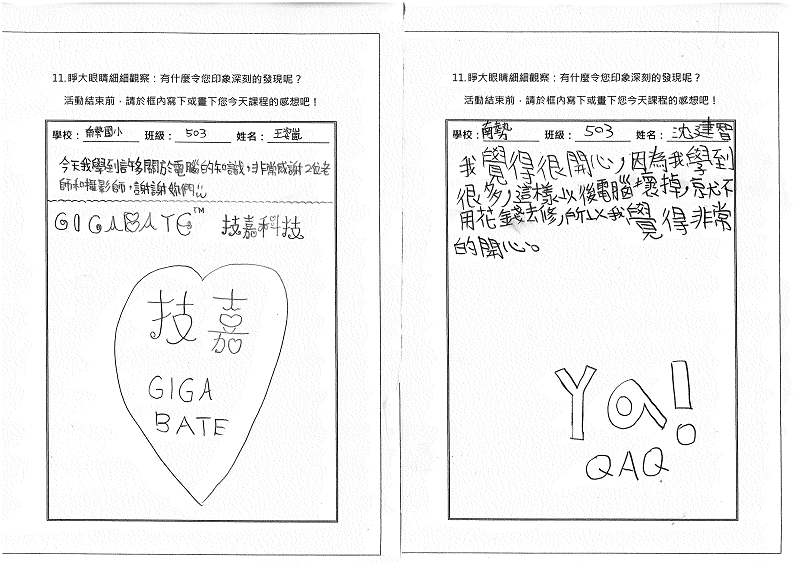 11.睜大眼睛細細觀察：有什麼令您印象深刻的發現呢？
活動結束前，請於框內寫下或畫下您今天課程的感想吧！
學校：南勢國小 班級：503 姓名：王
今天我學到許多關於電腦的知識，非常感謝2位老
師和攝影師，謝謝你們
GIGABATE™ 技嘉科技
技嘉
GIGA
BATE
11.睜大眼睛細細觀察：有什麼令您印象深刻的發現呢？
活動結束前，請於框內寫下或畫下您今天課程的感想吧！
學校：南勢 班級：503 姓名：沈建智
我覺得很開心，因為我學到
很多，這樣以後電腦壞掉，就不
用花錢去修，所以我覺得非常
的開心。
Ya!
QAQ